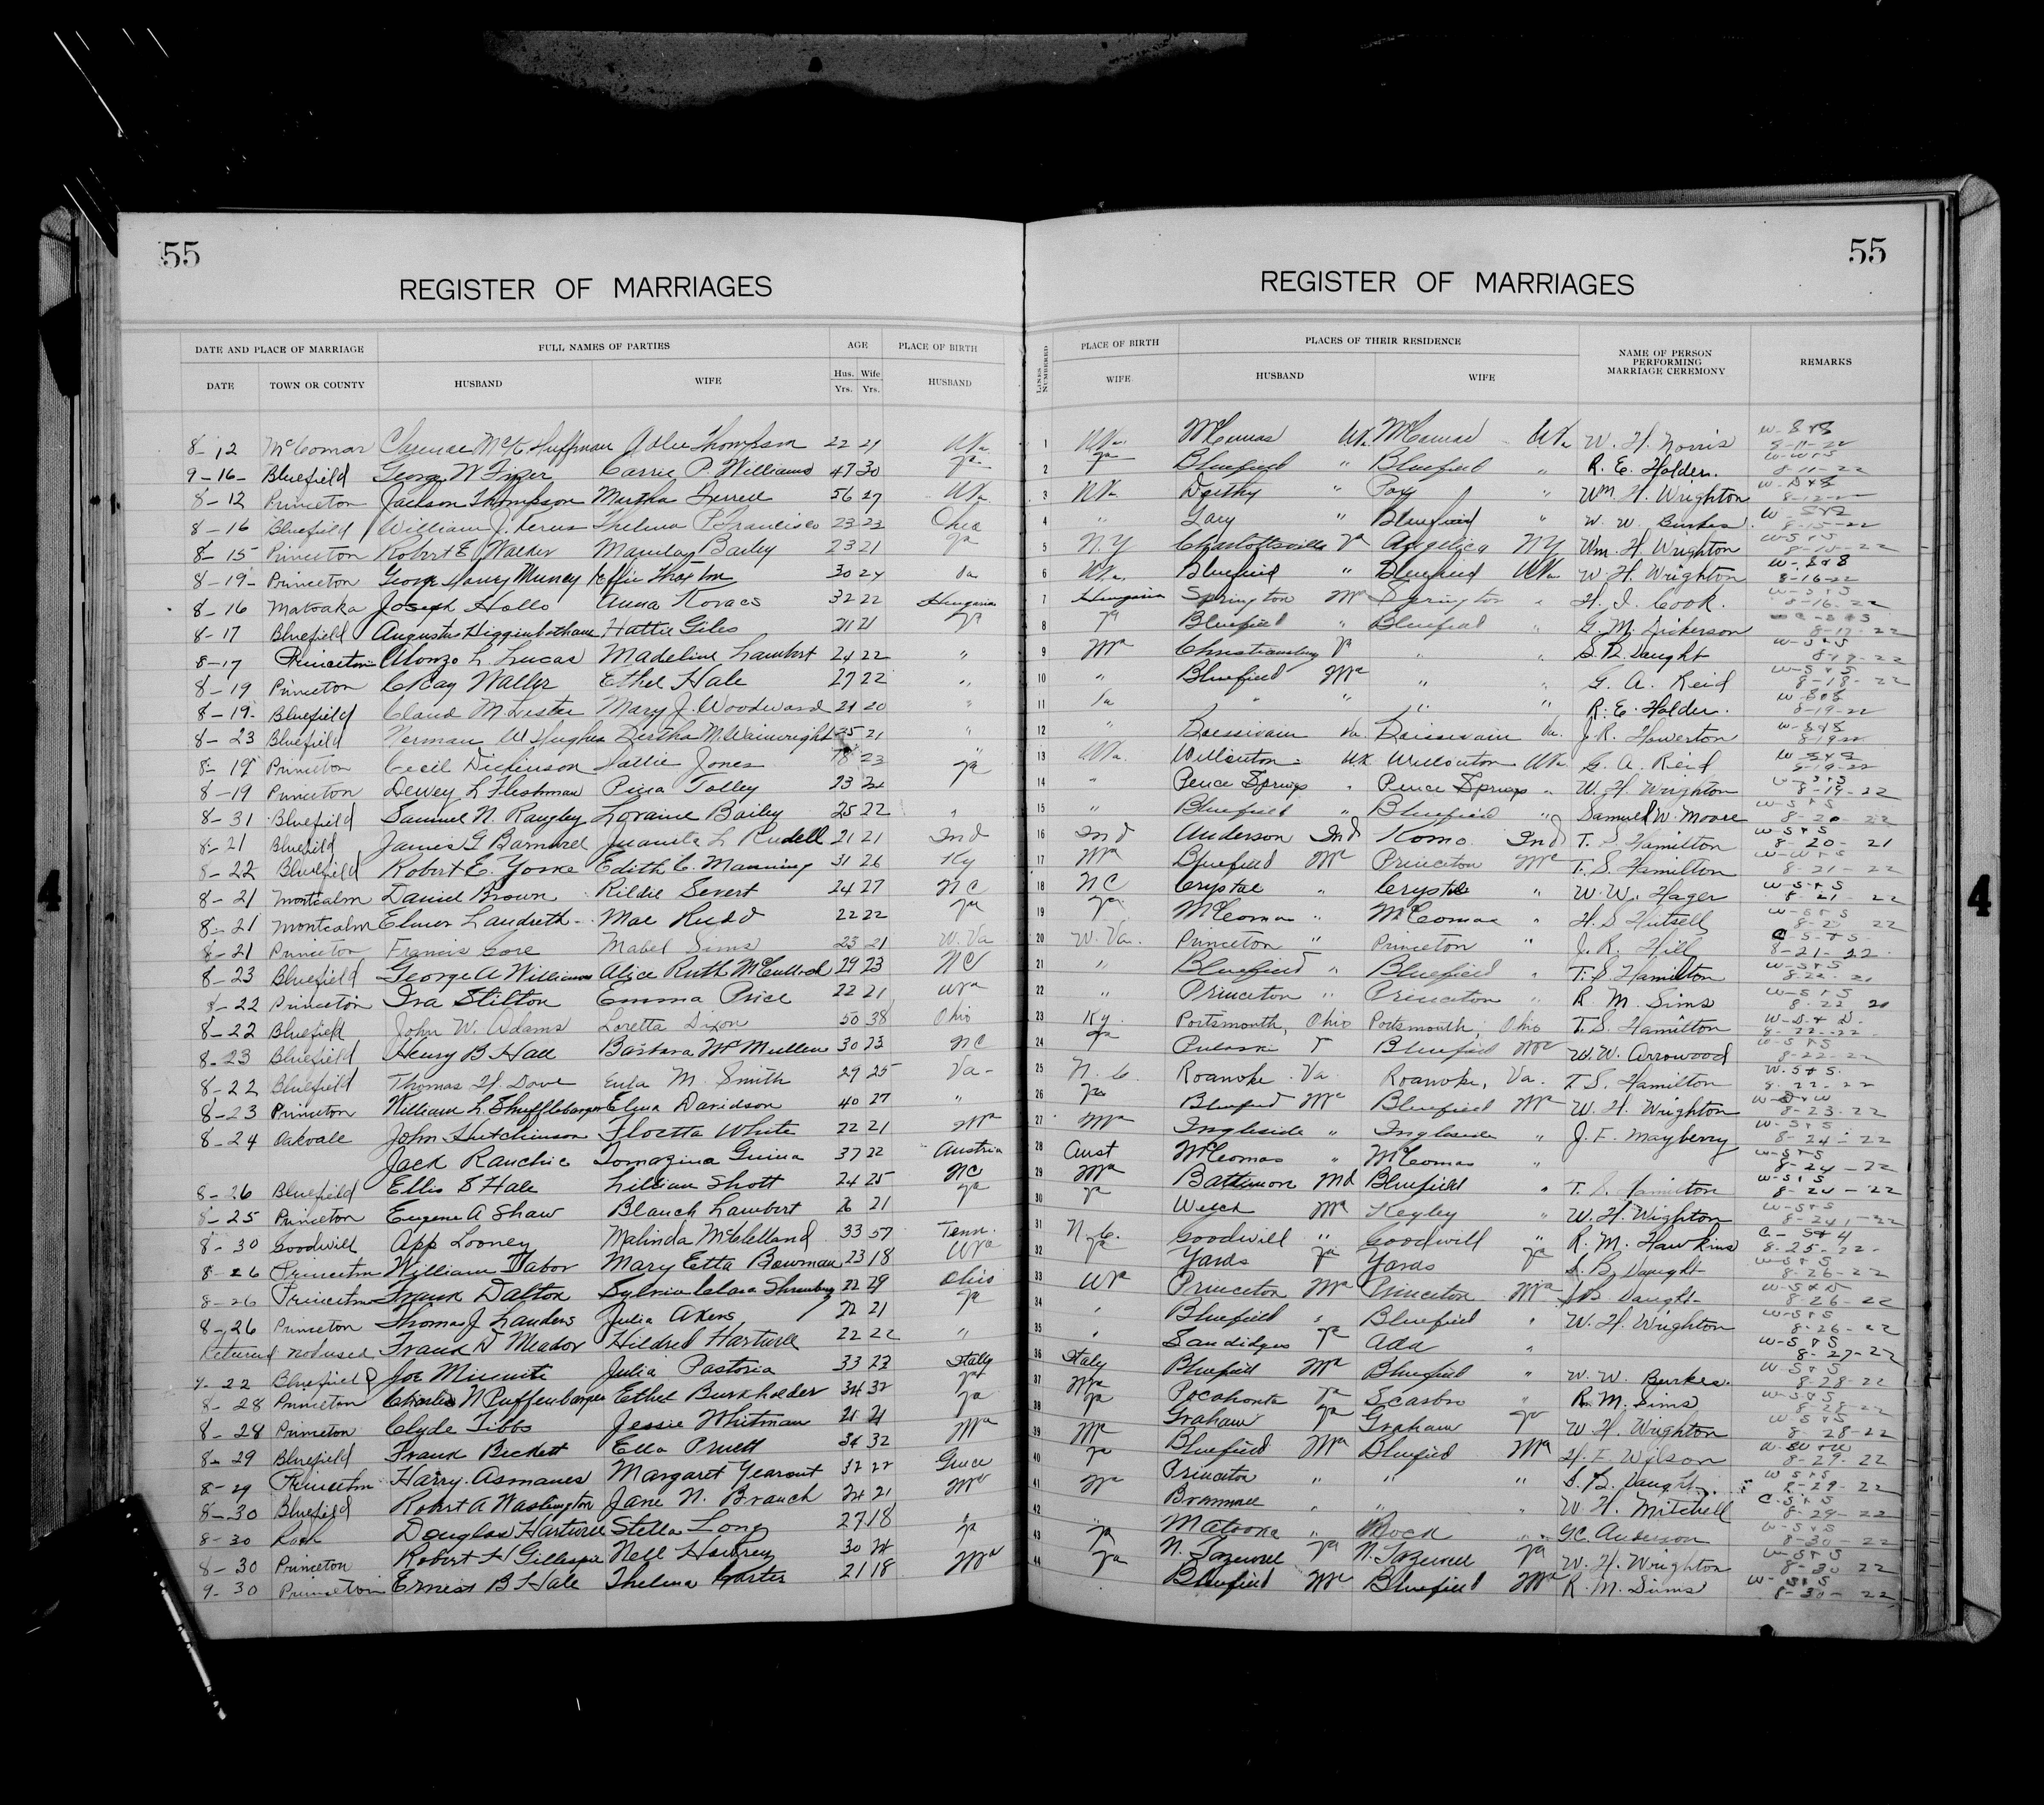 55
REGISTER OF MARRIAGES
DATE AND PLACE OF MARRIAGE FULL NAMES OF PARTIES AGE PLACE OF BIRTH
DATE TOWN OR COUNTY HUSBAND WIFE Hus. Yrs. Wife Yrs. HUSBAND
8-12 McComas Clarence Huffman Thompson 22 21 WVa
9-16- Bluefield George W Fizer Carrie P. Williams 47 30 Va
8-12 Princeton Jackson Thompson Martha 56 27 WVa
8-16 Bluefield William J. Thelma Francisco 23 23 Ohio
8-15 Princeton Robert E Walker Bailey 23 21 Va
8-19- Princeton George Muncy Effie Thaxton 30 24 Va
8-16 Matoaka Joseph Hollo Anna Kovacs 32 22 Hungaria
8-17 Bluefield Augustus Higginbotham Hattie Giles 21 21 Va
8-17 Princeton Alonzo L Lucas Madeline Lambert 24 22 "
8-19 Princeton C Ray Waller Ethel Hale 27 22 "
8-19- Bluefield Claud M Lester Mary J. Woodward 21 20 "
8-23 Bluefield Herman W Hughes Bertha M. Wainwright 25 21 "
8-19 Princeton Cecil Dickinson Sallie Jones 23 "
8-19 Princeton Dewey L Fleshman Pina Tolley 23 Va
8-31 Bluefield Samuel N. Rangley Loraine Bailey 25 22 "
8-21 Bluefield James G Barnard Juanita L Rudell 21 21 Ind
8-22 Bluefield Robert E. Yorke Edith C. Manning 31 26 Ky
8-21 Montcalm David Brown Rildie Severt 24 27 NC
8-21 Montcalm Elmer Landreth Mae Rudd 22 22 Va
8-21 Princeton Francis Gore Mabel Sims 23 21 W. Va
8-23 Bluefield George A Williams Alice Ruth McCulloch 29 23 NC
8-22 Princeton Ira Stilton Emma Price 22 21 WVa
8-22 Bluefield John W. Adams Loretta Dixon 50 38 Ohio
8-23 Bluefield Henry B Hall Barbara McMullen 30 23 NC
8-22 Bluefield Thomas H. Dove Eula M. Smith 29 25 Va-
8-23 Princeton William L. Shufflebarger Elma Davidson 40 27 "
8-24 Oakvale John Hutchinson Floetta White 22 21 WVa
Jack Ranchie Tomazina Guina 37 22 Austria
8-26 Bluefield Ellis S Hale Lillian Shott 24 25 NC
8-25 Princeton Eugene A Shaw Blanch Lambert 26 21 Va
8-30 Goodwill App Looney Malinda McClelland 33 57 Tenn.
8-26 Princeton William Tabor Mary Etta Bowman 23 18 WVa
8-26 Princeton Frank Dalton Sylvia Clara 22 29 Ohio
8-26 Princeton Thomas J Landers Julia Akers 22 21 Va
Returned not used Frank D Meador Hildred Hartwell 22 22 "
Bluefield Joe Minnite Julia Pastoria 33 23 Italy
8-28 Princeton Charles N Puffenbarger Ethel Burkholder 34 32 Va
8-28 Princeton Clyde Tibbs Jessie Whitman 21 21 Va
8-29 Bluefield Frank Beckett Ella Pruett 34 32 WVa
8-29 Princeton Harry Asmanes Margaret Yearout 32 22 Greece
8-30 Bluefield Robert A Washington Jane N. Branch 24 21 WVa
8-30 Rock Douglas Hartwell Stella Long 27 18 "
8-30 Princeton Robert H Gillespie Nell 30 24 Va
9-30 Princeton Ernest B Hale Thelma Carter 21 18 WVa
55
REGISTER OF MARRIAGES
LINES NUMBERED PLACE OF BIRTH PLACES OF THEIR RESIDENCE NAME OF PERSON PERFORMING MARRIAGE CEREMONY REMARKS
WIFE HUSBAND WIFE
1 WVa McComas WVa McComas WVa W. H. Norris W-S&S 8-11-22
2 Va Bluefield " Bluefield " R. E. Holder. W-W&S 8-11-22
3 WVa " " Wm. H. Wrighton W-D&S
4 " Gary " Bluefield " W. W. Burkes. W-S&S 8-15-22
5 N.Y Charlottsville Va Angelica NY Wm. H. Wrighton W-S&S
6 WVa. Bluefield " Bluefield WVa W. H. Wrighton W-S&S 8-16-22
7 Hungaria Springton WVa Springton " H. I. Cook. W-S&S 8-16-22
8 Va Bluefield " Bluefield " G. M. Dickerson 8-17-22
9 WVa Christiansburg Va " " S. B. Daught W-S&S
10 " Bluefield WVa " " G. A. Reid W-S&S 8-18-22
11 Va " " " " R. E. Holder. W-S&S 8-19-22
12 " Boissevain Va. Boissevain Va. J. R. Howerton W-S&S 8-19-22
13 WVa Willowton WVa Willowton WVa G. A. Reid W-S&S 8-19-22
14 " Pence Springs " Pence Springs " W. H. Wrighton W-S&S 8-19-22
15 " Bluefield " Bluefield " Samuel W. Moore W-S&S 8-20-22
16 Ind Anderson Ind Komo Ind T. S. Hamilton W-S&S 8-20-21
17 WVa Bluefield WVa Princeton WVa T. S. Hamilton W-W&S 8-21-22
18 NC Crystal " Crystal " W. W. Hager W-S&S 8-21 22
19 Va McComas " McComas " H. S Hutsell W-S&S 22
20 W. Va. Princeton " Princeton " J. R. Hill C-S&S 8-21-22
21 " Bluefield " Bluefield " T. S. Hamilton W-S&S
22 " Princeton " Princeton " R. M. Sims W-S&S 8-22
23 Ky. Portsmouth, Ohio Portsmouth, Ohio T. S. Hamilton W-D&D. 8-22-22
24 Va Pulaski Va Bluefield WVa W. W. Arrowood W-S&S 8-22-22
25 N.C. Roanoke Va Roanoke, Va. T. S. Hamilton W-S&S. 8-22-22
26 Va Bluefield WVa Bluefield WVa W. H. Wrighton 8-23-22
27 WVa Ingleside " Ingleside " J. F. Mayberry W-S&S 8-24-22
28 Aust McComas " McComas " W-S&S 8-24-22
29 WVa Baltimore Md Bluefield " T. S. Hamilton W-S&S 8-24-22
30 Va Welch WVa Kegley " W. H. Wrighton W-S&S
31 N.C. Goodwill " Goodwill " R. M. Hawkins 8-25-22
32 Va Yards Va Yards Va S. B. Daught W-S&S 8-26-22
33 WVa Princeton WVa Princeton WVa S. B. Daught 8-26-22
34 " Bluefield " Bluefield " W. H. Wrighton W-S&S 8-26-22
35 " Sandidges Va Ada " W-S&S 8-27-22
36 Italy Bluefield WVa Bluefield " W. W. Burkes. W-S&S 8-28-22
37 WVa Pocahontas Va Scarbro " R. M. Sims W-S&S 8-28-22
38 Va Graham Va Graham Va W. H. Wrighton W-S&S 8-28-22
39 WVa Bluefield WVa Bluefield WVa H. E. Wilson 8-29-22
40 Va Princeton " " " S. B. Daught W-S&S 8-29-22
41 WVa " " " W. H. Mitchell C-S&S 8-29-22
42 " Matoaka " Rock " G. C. Anderson W-S&S 8-30-22
43 Va N. Tazewell Va N. Tazewell Va W. H. Wrighton W-S&S 8-30 22
44 Va Bluefield WVa Bluefield WVa R. M. Sims W-S&S 8-30-22
4
4